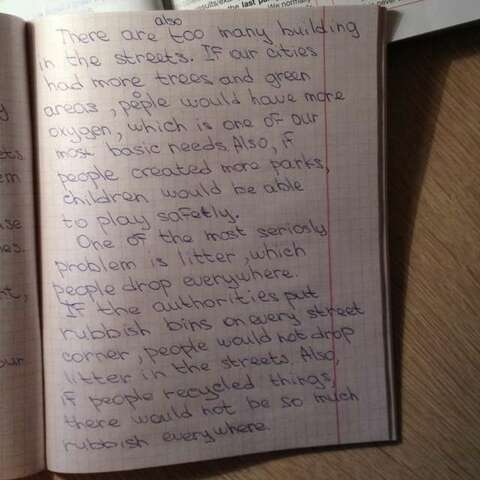 also
There are too many building
in the streets. If our cities
had more trees and green
areas, people would have more
oxygen, which is one of our
most basic needs. Also, if
people created more parks,
children would be able
to play safetly.
One of the most seriosly
problem is litter, which
people drop everywhere.
If the authorities put
rubbish bins on every street
corner, people would not drop
litter in the streets. Also,
if people recycled things,
there would not be so much
rubbish everywhere.
the last par
We normally